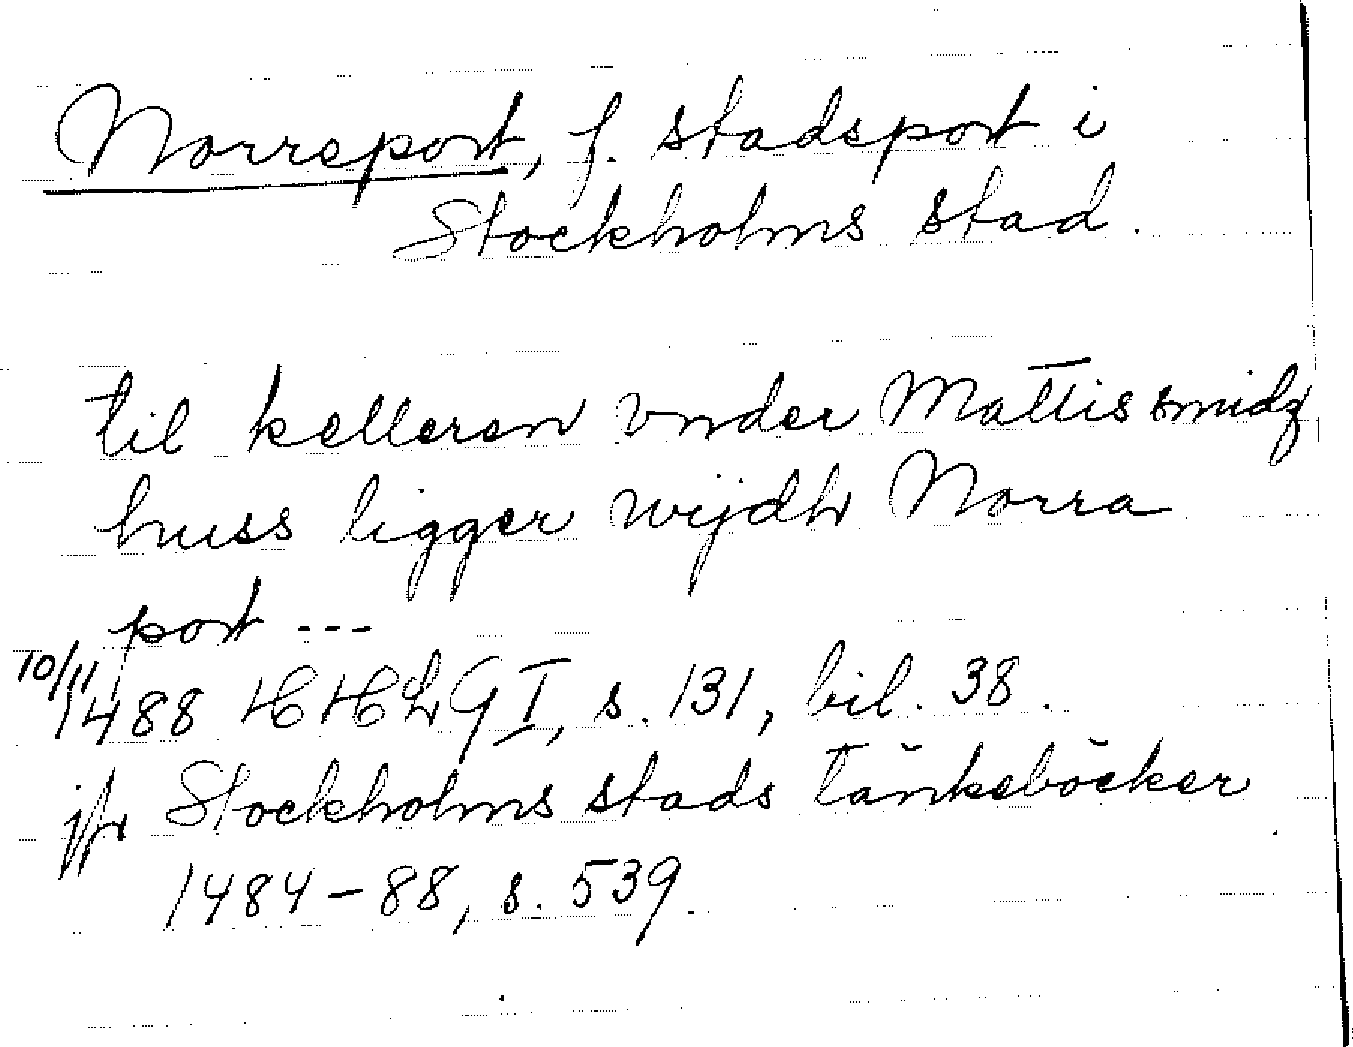 Norreport, f. stadsport i
Stockholms stad.
til kelleren vnder Mattis smidz
huss ligger wijdh Norra
port ---
10/11 1488 HHLG I, s. 131, bil. 38.
jfr Stockholms stads tänkeböcker
1484-88, s. 539.